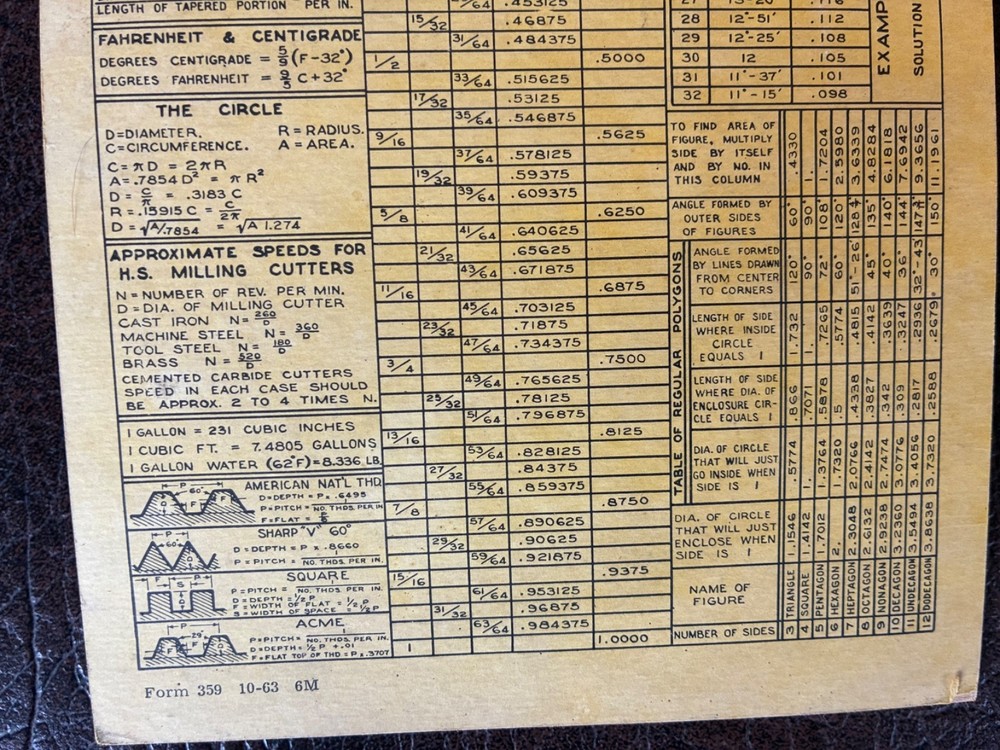 LENGTH OF TAPERED PORTION PER IN.
FAHRENHEIT & CENTIGRADE
DEGREES CENTIGRADE = 5/9 (F-32°)
DEGREES FAHRENHEIT = 9/5 C+32°
THE CIRCLE
D=DIAMETER. R = RADIUS.
C=CIRCUMFERENCE. A = AREA.
C = πD = 2πR
A = .7854 D² = πR²
D = C/π = .3183 C
R = .15915 C = C/2π
D = √A/.7854 = √A 1.274
APPROXIMATE SPEEDS FOR
H.S. MILLING CUTTERS
N = NUMBER OF REV. PER MIN.
D = DIA. OF MILLING CUTTER
CAST IRON N= 260/D
MACHINE STEEL N= 360/D
TOOL STEEL N= 180/D
BRASS N = 520/D
CEMENTED CARBIDE CUTTERS
SPEED IN EACH CASE SHOULD
BE APPROX. 2 TO 4 TIMES N.
1 GALLON = 231 CUBIC INCHES
1 CUBIC FT. = 7.4805 GALLONS
1 GALLON WATER (62°F)=8.336 LB.
AMERICAN NAT'L THD.
P
60°
F
D=DEPTH = P x .6495
P=PITCH = NO. THDS. PER IN.
F=FLAT = P/8
SHARP "V" 60°
P
60°
D = DEPTH = P x .8660
P = PITCH = NO. THDS. PER IN.
SQUARE
F P
S
P=PITCH = NO. THDS. PER IN.
D = DEPTH = 1/2 P
F = WIDTH OF FLAT = 1/2 P
S = WIDTH OF SPACE = 1/2 P
ACME
P
29°
P=PITCH= NO. THDS. PER IN.
D=DEPTH= 1/2 P +.01
F=FLAT TOP OF THD = P x .3707
Form 359 10-63 6M
29/64 .453125
15/32 .46875
31/64 .484375
1/2 .5000
33/64 .515625
17/32 .53125
35/64 .546875
9/16 .5625
37/64 .578125
19/32 .59375
39/64 .609375
5/8 .6250
41/64 .640625
21/32 .65625
43/64 .671875
11/16 .6875
45/64 .703125
23/32 .71875
47/64 .734375
3/4 .7500
49/64 .765625
25/32 .78125
51/64 .796875
13/16 .8125
53/64 .828125
27/32 .84375
55/64 .859375
7/8 .8750
57/64 .890625
29/32 .90625
59/64 .921875
15/16 .9375
61/64 .953125
31/32 .96875
63/64 .984375
1 1.0000
27 13°-20' .116
28 12°-51' .112
29 12°-25' .108
30 12 .105
31 11°-37' .101
32 11°-15' .098
EXAMP
SOLUTION
TABLE OF REGULAR POLYGONS
TO FIND AREA OF
FIGURE, MULTIPLY
SIDE BY ITSELF
AND BY NO. IN
THIS COLUMN
.4330 1. 1.7204 2.5980 3.6339 4.8284 6.1818 7.6942 9.3656 11.1961
ANGLE FORMED BY
OUTER SIDES
OF FIGURES
60° 90° 108° 120° 128 4/7 135° 140° 144° 147 3/11 150°
ANGLE FORMED
BY LINES DRAWN
FROM CENTER
TO CORNERS
120° 90° 72° 60° 51°-26' 45° 40° 36° 32°-43' 30°
LENGTH OF SIDE
WHERE INSIDE
CIRCLE
EQUALS 1
1.732 1. .7265 .5774 .4815 .4142 .3639 .3247 .2936 .2679
LENGTH OF SIDE
WHERE DIA. OF
ENCLOSURE CIR-
CLE EQUALS 1
.866 .7071 .5878 .5 .4338 .3827 .342 .309 .2817 .2588
DIA. OF CIRCLE
THAT WILL JUST
GO INSIDE WHEN
SIDE IS 1
.5774 1. 1.3764 1.7320 2.0766 2.4142 2.7474 3.0776 3.4056 3.7320
DIA. OF CIRCLE
THAT WILL JUST
ENCLOSE WHEN
SIDE IS 1
1.1546 1.4142 1.7012 2. 2.3048 2.6132 2.9238 3.2360 3.5494 3.8638
NAME OF
FIGURE
TRIANGLE SQUARE PENTAGON HEXAGON HEPTAGON OCTAGON NONAGON DECAGON UNDECAGON DODECAGON
NUMBER OF SIDES
3 4 5 6 7 8 9 10 11 12